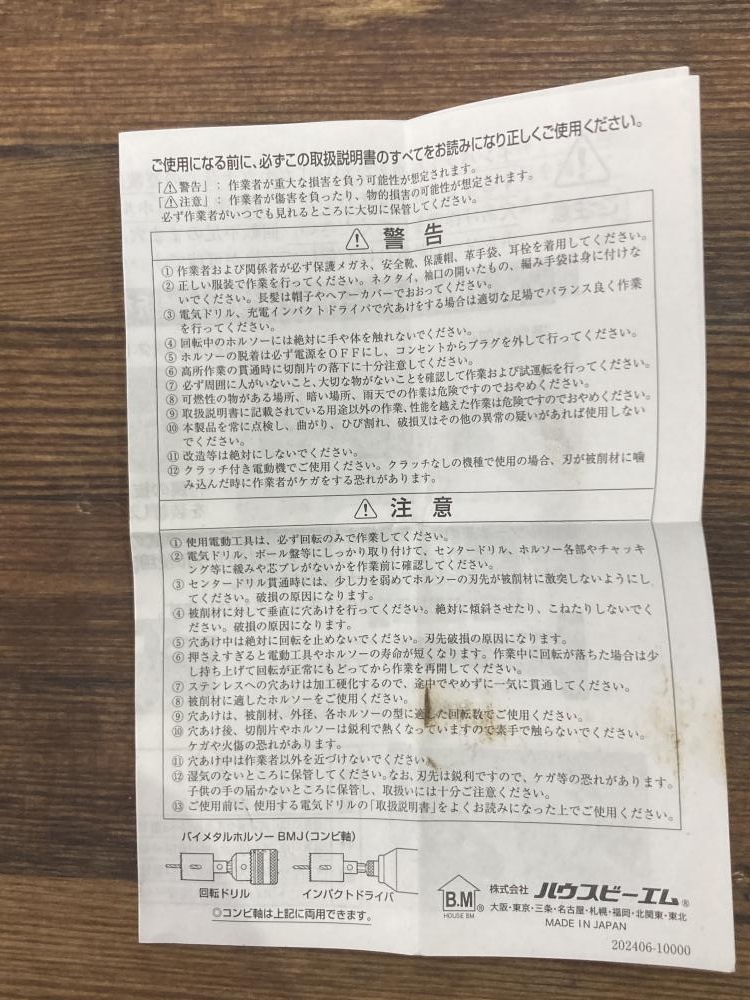 ご使用になる前に、必ずこの取扱説明書のすべてをお読みになり正しくご使用ください。
「⚠警告」：作業者が重大な損害を負う可能性が想定されます。
「⚠注意」：作業者が傷害を負ったり、物的損害の可能性が想定されます。
必ず作業者がいつでも見れるところに大切に保管してください。
⚠ 警告
① 作業者および関係者が必ず保護メガネ、安全靴、保護帽、革手袋、耳栓を着用してください。
② 正しい服装で作業を行ってください。ネクタイ、袖口の開いたもの、編み手袋は身に付けな
いでください。長髪は帽子やヘアーカバーでおおってください。
③ 電気ドリル、充電インパクトドライバで穴あけをする場合は適切な足場でバランス良く作業
を行ってください。
④ 回転中のホルソーには絶対に手や体を触れないでください。
⑤ ホルソーの脱着は必ず電源をOFFにし、コンセントからプラグを外して行ってください。
⑥ 高所作業の貫通時に切削片の落下に十分注意してください。
⑦ 必ず周囲に人がいないこと、大切な物がないことを確認して作業および試運転を行ってください。
⑧ 可燃性の物がある場所、暗い場所、雨天での作業は危険ですのでおやめください。
⑨ 取扱説明書に記載されている用途以外の作業、性能を越えた作業は危険ですのでおやめください。
⑩ 本製品を常に点検し、曲がり、ひび割れ、破損又はその他の異常の疑いがあれば使用しない
でください。
⑪ 改造等は絶対にしないでください。
⑫ クラッチ付き電動機でご使用ください。クラッチなしの機種で使用の場合、刃が被削材に噛
み込んだ時に作業者がケガをする恐れがあります。
⚠ 注意
① 使用電動工具は、必ず回転のみで作業してください。
② 電気ドリル、ボール盤等にしっかり取り付けて、センタードリル、ホルソー各部やチャッキ
ング等に緩みや芯ブレがないかを作業前に確認してください。
③ センタードリル貫通時には、少し力を弱めてホルソーの刃先が被削材に激突しないようにし
てください。破損の原因になります。
④ 被削材に対して垂直に穴あけを行ってください。絶対に傾斜させたり、こねたりしないでく
ださい。破損の原因になります。
⑤ 穴あけ中は絶対に回転を止めないでください。刃先破損の原因になります。
⑥ 押さえすぎると電動工具やホルソーの寿命が短くなります。作業中に回転が落ちた場合は少
し持ち上げて回転が正常にもどってから作業を再開してください。
⑦ ステンレスへの穴あけは加工硬化するので、途中でやめずに一気に貫通してください。
⑧ 被削材に適したホルソーをご使用ください。
⑨ 穴あけは、被削材、外径、各ホルソーの型に適した回転数でご使用ください。
⑩ 穴あけ後、切削片やホルソーは鋭利で熱くなっていますので素手で触らないでください。
ケガや火傷の恐れがあります。
⑪ 穴あけ中は作業者以外を近づけないでください。
⑫ 湿気のないところに保管してください。なお、刃先は鋭利ですので、ケガ等の恐れがあります。
子供の手の届かないところに保管し、取扱いには十分ご注意ください。
⑬ ご使用前に、使用する電気ドリルの「取扱説明書」をよくお読みになった上でご使用ください。
バイメタルホルソー BMJ（コンビ軸）
回転ドリル
インパクトドライバ
◎コンビ軸は上記に両用できます。
B.M
HOUSE BM
®
株式会社 ハウスビーエム®
大阪・東京・三条・名古屋・札幌・福岡・北関東・東北
MADE IN JAPAN
202406-10000